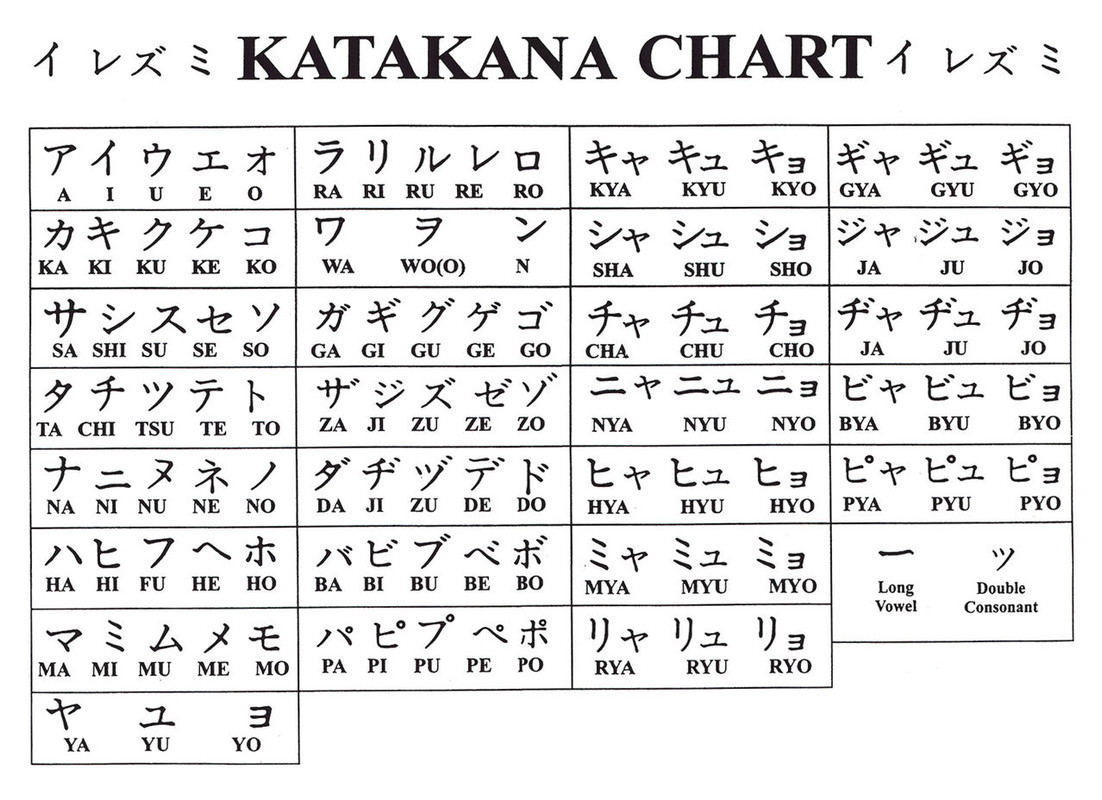 イレズミ KATAKANA CHART イレズミ
ア イ ウ エ オ
A I U E O
カ キ ク ケ コ
KA KI KU KE KO
サ シ ス セ ソ
SA SHI SU SE SO
タ チ ツ テ ト
TA CHI TSU TE TO
ナ ニ ヌ ネ ノ
NA NI NU NE NO
ハ ヒ フ ヘ ホ
HA HI FU HE HO
マ ミ ム メ モ
MA MI MU ME MO
ヤ ユ ヨ
YA YU YO
ラ リ ル レ ロ
RA RI RU RE RO
ワ ヲ ン
WA WO(O) N
ガ ギ グ ゲ ゴ
GA GI GU GE GO
ザ ジ ズ ゼ ゾ
ZA JI ZU ZE ZO
ダ ヂ ヅ デ ド
DA JI ZU DE DO
バ ビ ブ ベ ボ
BA BI BU BE BO
パ ピ プ ペ ポ
PA PI PU PE PO
キャ キュ キョ
KYA KYU KYO
シャ シュ ショ
SHA SHU SHO
チャ チュ チョ
CHA CHU CHO
ニャ ニュ ニョ
NYA NYU NYO
ヒャ ヒュ ヒョ
HYA HYU HYO
ミャ ミュ ミョ
MYA MYU MYO
リャ リュ リョ
RYA RYU RYO
ギャ ギュ ギョ
GYA GYU GYO
ジャ ジュ ジョ
JA JU JO
ヂャ ヂュ ヂョ
JA JU JO
ビャ ビュ ビョ
BYA BYU BYO
ピャ ピュ ピョ
PYA PYU PYO
ー ッ
Long Double
Vowel Consonant